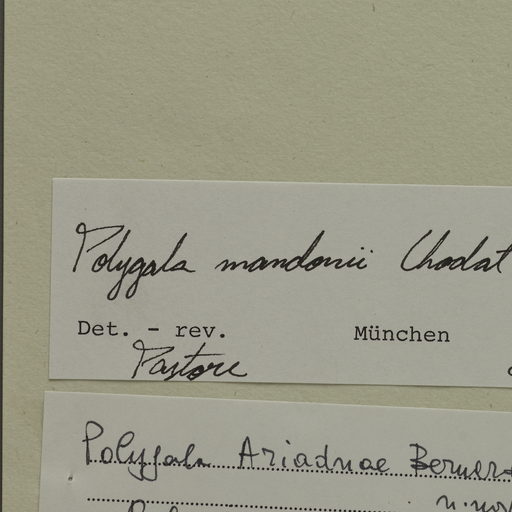 Polygala mandonii Chodat
Det. - rev. München
Pastore
Polygala Ariadnae
n.nov